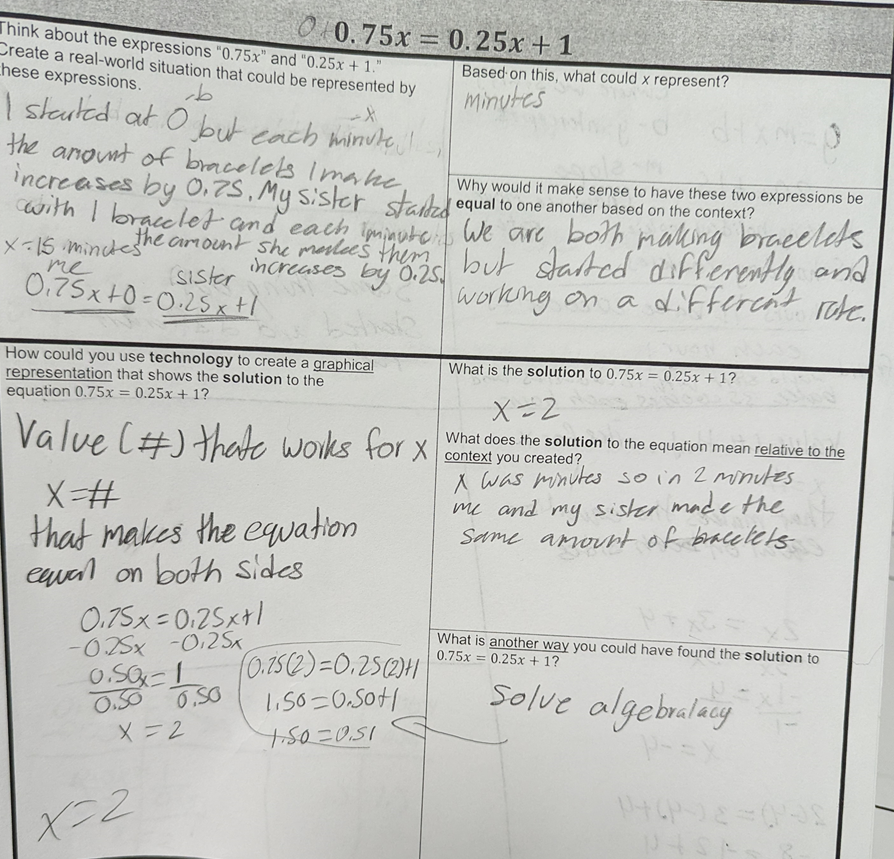 0+0.75x = 0.25x + 1
Think about the expressions "0.75x" and "0.25x + 1."
Create a real-world situation that could be represented by
these expressions.
-b
-x
I started at 0 but each minute
the amount of bracelets I make
increases by 0.75. My sister started
with 1 bracelet and each 1 minute
the amount she makes them
increases by 0.25.
x=15 minutes
me
sister
0.75x+0=0.25x+1
Based on this, what could x represent?
minutes
Why would it make sense to have these two expressions be
equal to one another based on the context?
We are both making bracelets
but started differently and
working on a different rate.
How could you use technology to create a graphical
representation that shows the solution to the
equation 0.75x = 0.25x + 1?
Value (#) thatc works for x
x=#
that makes the equation
equal on both sides
0.75x=0.25x+1
-0.25x -0.25x
0.50x=1
0.50 0.50
x=2
0.75(2)=0.25(2)+1
1.50=0.50+1
1.50=0.51
x=2
What is the solution to 0.75x = 0.25x + 1?
x=2
What does the solution to the equation mean relative to the
context you created?
x was minutes so in 2 minutes
me and my sister made the
same amount of bracelets
What is another way you could have found the solution to
0.75x = 0.25x + 1?
Solve algebralacy